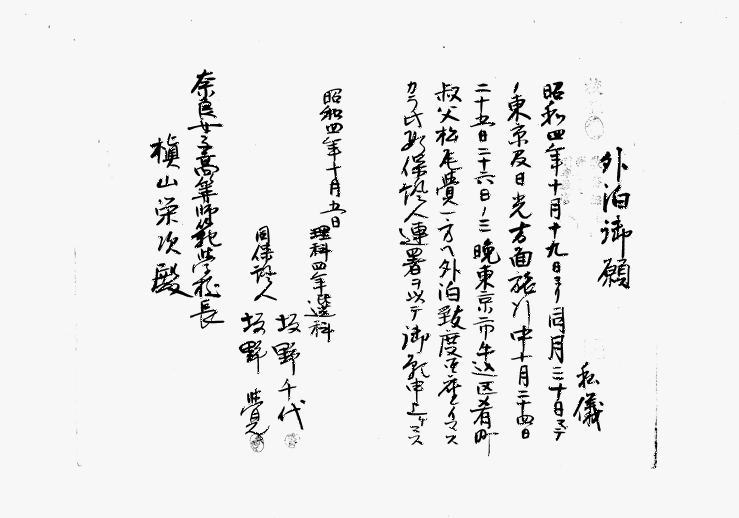 外泊御願
私儀
昭和四年十月十九日ヨリ同月三十日マデ
ノ東京及日光方面旅行中十月二十四日
二十五日二十六日ノ三晩東京市牛込区肴町
叔父松尾費一方ヘ外泊致度御座イマス
カラ此段保証人連署ヲ以テ御願申上ゲマス
昭和四年十月五日
理科四年選科
坂野千代
同保証人
坂野覺
奈良女子高等師範学校長
槇山栄次殿